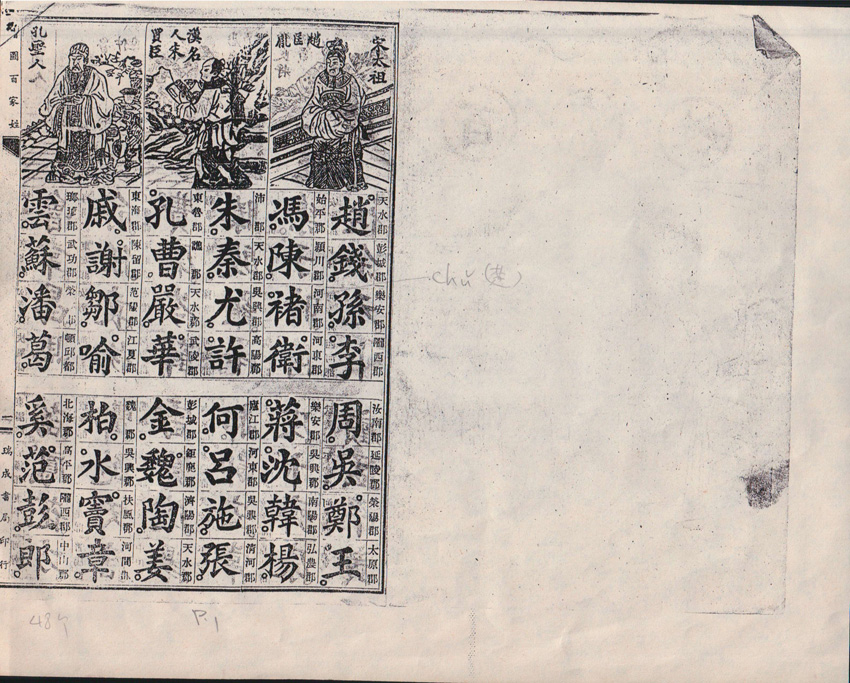 宋太祖
趙匡胤
漢名人朱買臣
孔聖人
天水郡 彭城郡 樂安郡 隴西郡
趙錢孫李
始平郡 潁川郡 河南郡 河東郡
馮陳褚衛
沛郡 天水郡 吳興郡 高陽郡
朱秦尤許
東魯郡 譙郡 天水郡 武陵郡
孔曹嚴華
東海郡 陳留郡 范陽郡 江夏郡
戚謝鄒喻
瑯琊郡 武功郡 頓邱郡
雲蘇潘葛
汝南郡 延陵郡 滎陽郡 太原郡
周吳鄭王
樂安郡 吳興郡 南陽郡 弘農郡
蔣沈韓楊
廬江郡 河東郡 吳興郡 清河郡
何呂施張
彭城郡 鉅鹿郡 濟陽郡 天水郡
金魏陶姜
魏郡 吳興郡 扶風郡 河間郡
柏水竇章
北海郡 高平郡 隴西郡 中山郡
奚范彭郎
國百家姓
一
瑞成書局印行
chǔ
P.1